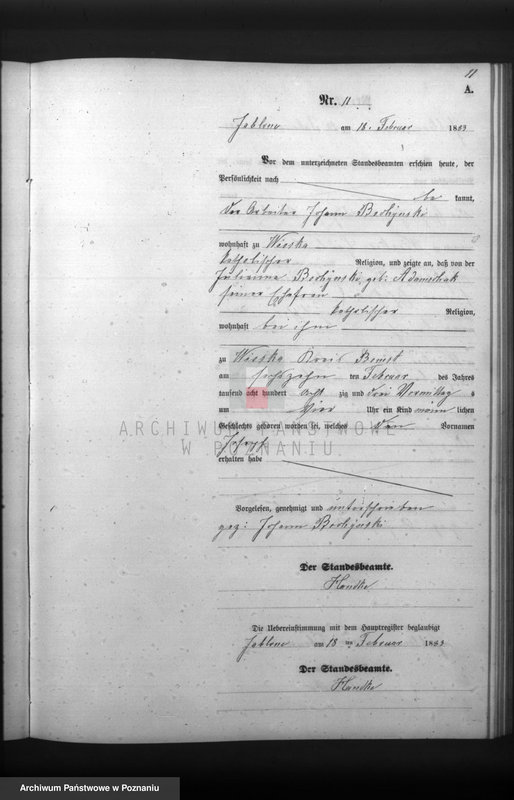 11
A.
Nr. 11
Jablone am 18. Februar 1883
Vor dem unterzeichneten Standesbeamten erschien heute, der
Persönlichkeit nach
be kannt,
der Arbeiter Johann
wohnhaft zu Wioska
katholischer Religion, und zeigte an, daß von der
Julianna geb. Adamczak
seiner Ehefrau
katholischer Religion,
wohnhaft bei ihm
zu Wioska Kreis Bomst
am sechszehn ten Februar des Jahres
tausend acht hundert acht zig und drei Vormittag s
um vier Uhr ein Kind männ lichen
Geschlechts geboren worden sei, welches den Vornamen
Joseph
erhalten habe
Vorgelesen, genehmigt und unterschrieben
gez: Johann
Der Standesbeamte.
Handke
Die Uebereinstimmung mit dem Hauptregister beglaubigt
Jablone am 18 ten Februar 1883
Der Standesbeamte.
Handke
ARCHIWUM PAŃSTWOWE
W POZNANIU
Archiwum Państwowe w Poznaniu